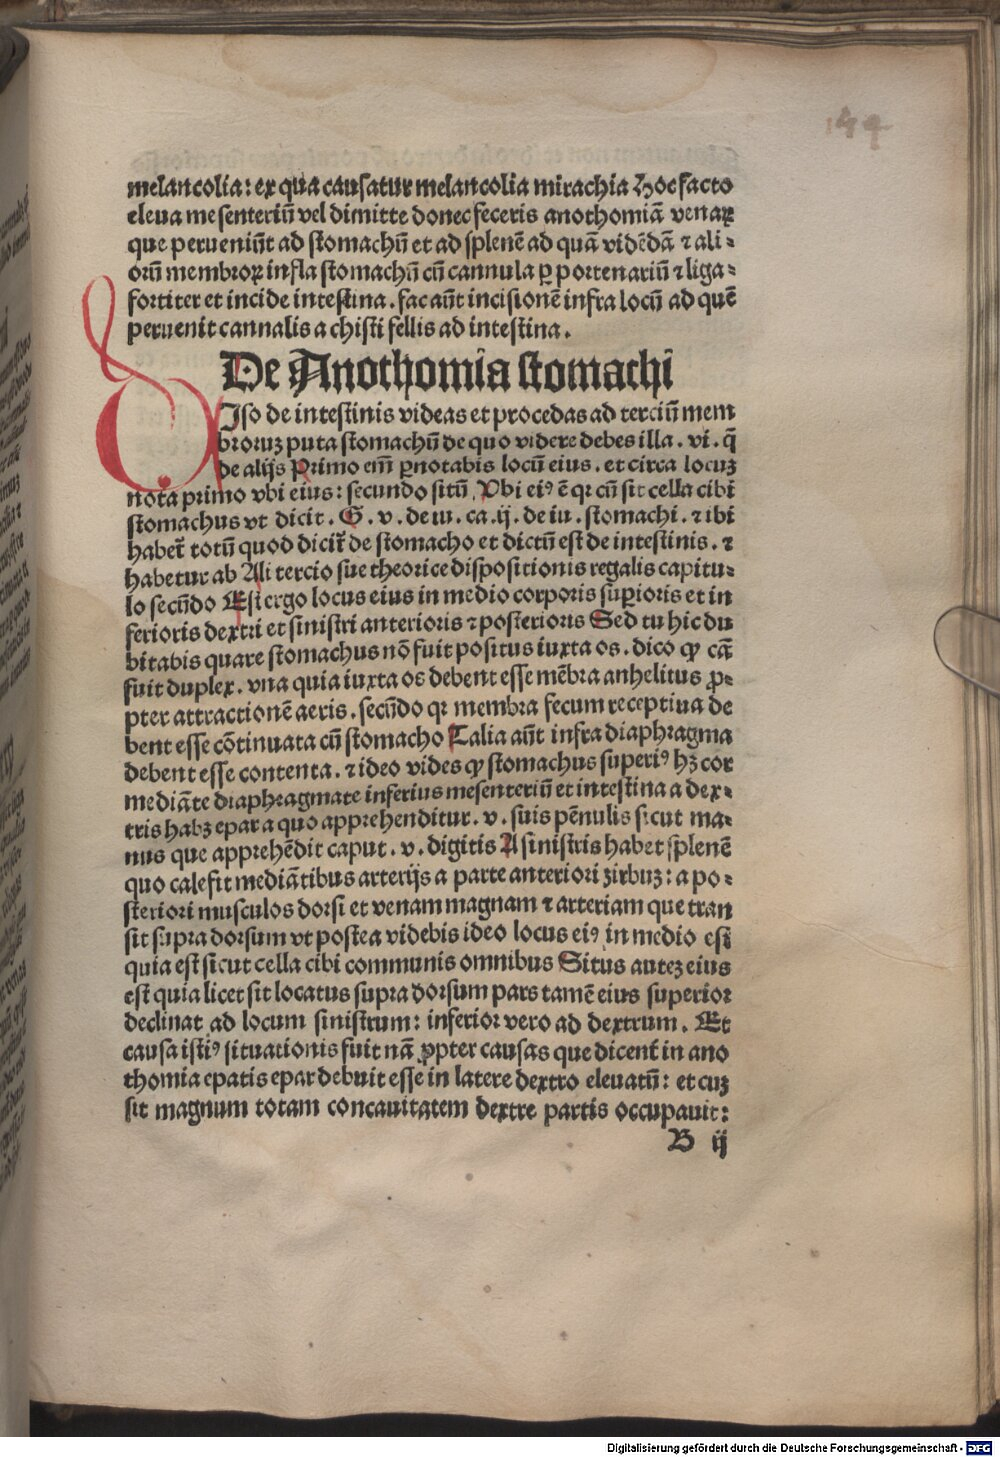 144
melancolia: ex qua causatur melancolia mirachia Hoc facto
eleua mesenteriū vel dimitte donec feceris anothomiā venaꝝ
que perueniūt ad stomachū et ad splenē ad quā vidēdā ⁊ ali⸗
orū membroꝝ infla stomachū cū cannula ꝑ portenariū ⁊ liga⸗
fortiter et incide intestina. fac aūt incisionē infra locū ad quē
peruenit cannalis a chisti fellis ad intestina.
De Anothomia stomachi
VIso de intestinis videas et procedas ad terciū mem
broruꝫ puta stomachū de quo videre debes illa. vi. q̄
de alijs Primo em̄ ꝑnotabis locū eius. et circa locuꝫ
nota primo vbi eius: secundo sitū, Vbi eiꝰ ē qꝛ cū sit cella cibi
stomachus vt dicit. G. v. de iu. ca. ij. de iu. stomachi. ⁊ ibi
habet̄ totū quod dicit̄ de stomacho et dictū est de intestinis. ⁊
habetur ab Ali tercio sue theorice dispositionis regalis capitu⸗
lo secūdo Est ergo locus eius in medio corporis suꝑioris et in
ferioris dextri et sinistri anterioris ⁊ posterioris Sed tu hic du
bitabis quare stomachus nō fuit positus iuxta os. dico ꝙ cā
fuit duplex. vna quia iuxta os debent esse mēbra anhelitus ꝓ⸗
pter attractionē aeris. secūdo qꝛ membra fecum receptiua de
bent esse cōtinuata cū stomacho Talia aūt infra diaphragma
debent esse contenta. ⁊ ideo vides ꝙ stomachus superiꝰ hꝫ cor
mediāte diaphragmate inferius mesenteriū et intestina a dex⸗
tris habꝫ epar a quo apprehenditur. v. suis pēnulis sicut ma⸗
nus que apprehēdit caput. v. digitis A sinistris habet splenē
quo calefit mediātibus arterijs a parte anteriori zirbuꝫ: a po⸗
steriori musculos dorsi et venam magnam ⁊ arteriam que tran
sit supra dorsum vt postea videbis ideo locus eiꝰ in medio est
quia est sicut cella cibi communis omnibus Situs auteꝫ eius
est quia licet sit locatus supra dorsum pars tamē eius superior
declinat ad locum sinistrum: inferior vero ad dextrum. Et
causa istiꝰ situationis fuit nā ꝓpter causas que dicent̄ in ano
thomia epatis epar debuit esse in latere dextro eleuatū: et cuꝫ
sit magnum totam concauitatem dextre partis occupauit:
B ij
Digitalisierung gefördert durch die Deutsche Forschungsgemeinschaft - DFG